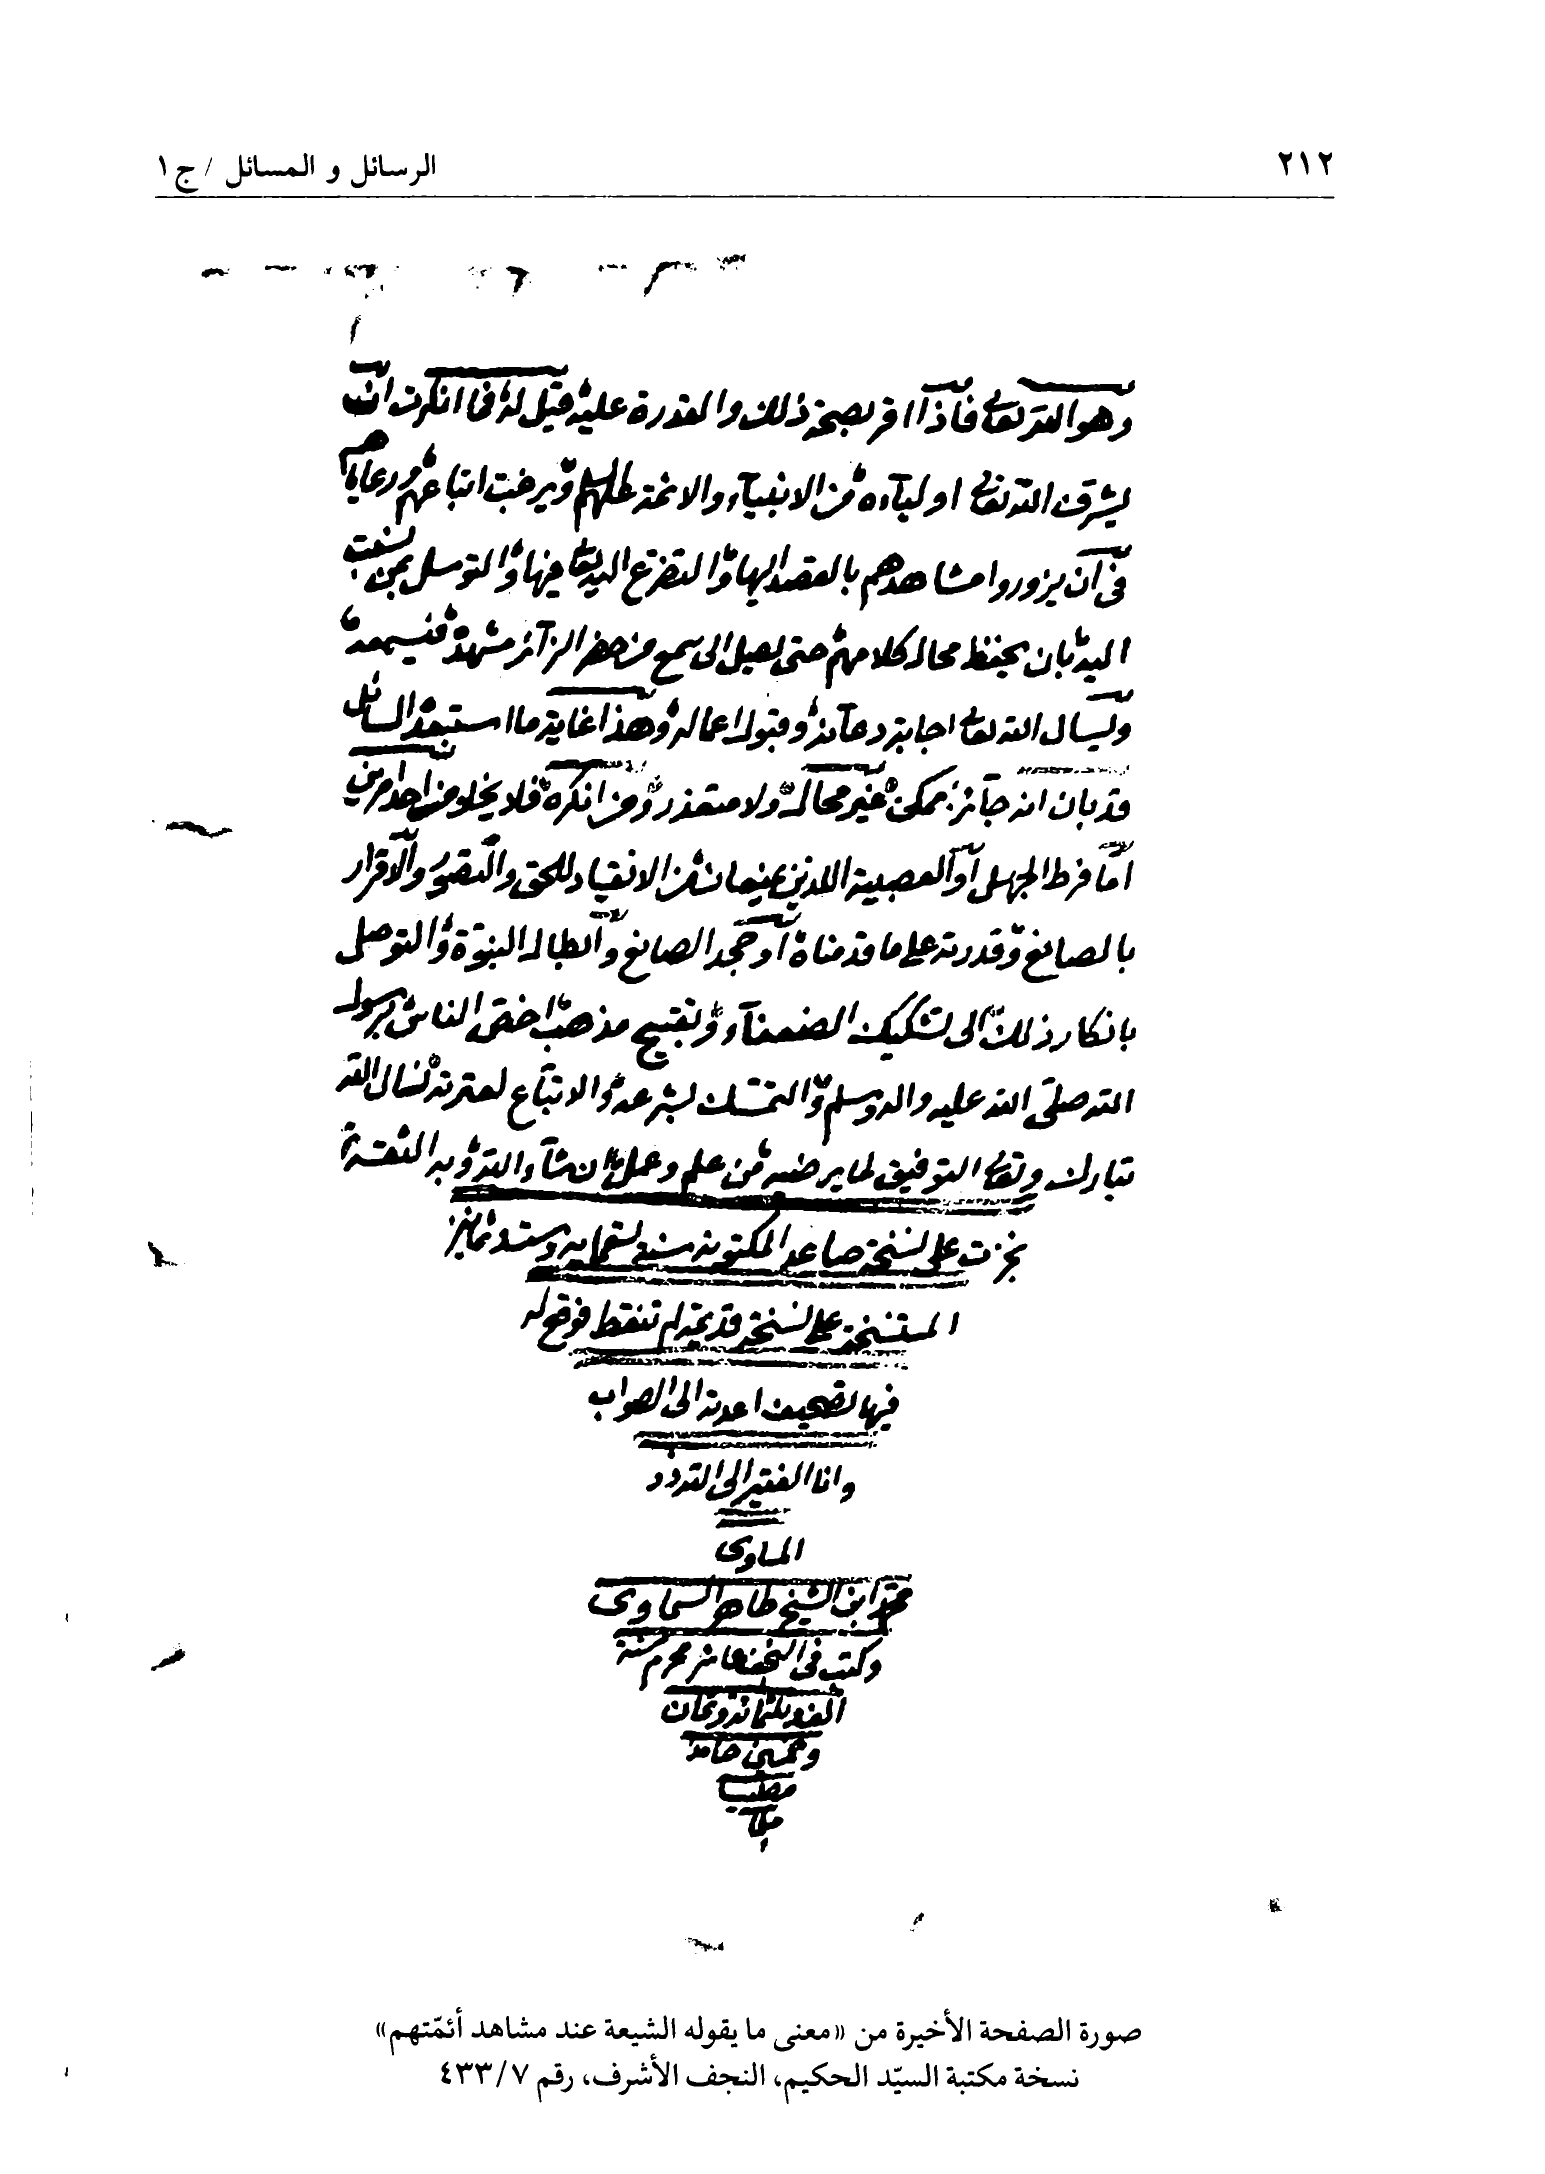 ٢١٢
الرسائل و المسائل / ج١
وهو الله تعالى فاذا اقر بصحة ذلك والقدرة عليه قيل له فما انكرت ان
يشرف الله تعالى اولياءه من الانبياء والائمة عليهم السلم ويرغب اتباعهم ورعاياهم
في ان يزوروا مشاهدهم بالقصد اليها والتضرع اليه تعالى فيها والتوسل بمن
اليه بان يحفظ محال كلامهم حتى يصل الى سمع من حضر الزائر مشهده فيسمعه
وليسال الله تعالى اجابة دعائه وقبول اعماله وهذا غاية ما استبعد السائل
قد بان انه جائز ممكن غير محال ولا متعذر ومن انكره فلا يخلو من احد امرين
اما فرط الجهل او العصبية اللذين يمنعان من الانقياد للحق والتصور والاقرار
بالصانع وقدرته على ما قدمناه او جحد الصانع وابطال النبوة والتوصل
بانكار ذلك الى تشكيك الضعفاء وتقبيح مذهب اخص الناس برسول
الله صلى الله عليه واله وسلم والتمسك بشرعه والاتباع لعترته نسال الله
تبارك وتعالى التوفيق لما يرضيه من علم وعمل ان شاء الله وبه الثقة
نجزت على نسخة صاعد المكتوبة سنة
المستنسخة على نسخة قديمة لم تنقط فوقع له
فيها تصحيف اعدته الى الصواب
وانا الفقير الى الله
محمد ابن الشيخ طاهر السماوى
وكتب فى النجف عاشر محرم سنة
الف وثلثمائة وثمان
وخمسين حامدا
مصليا
صورة الصفحة الأخيرة من «معنى ما يقوله الشيعة عند مشاهد أئمّتهم»
نسخة مكتبة السيّد الحكيم، النجف الأشرف، رقم ٤٣٣/٧